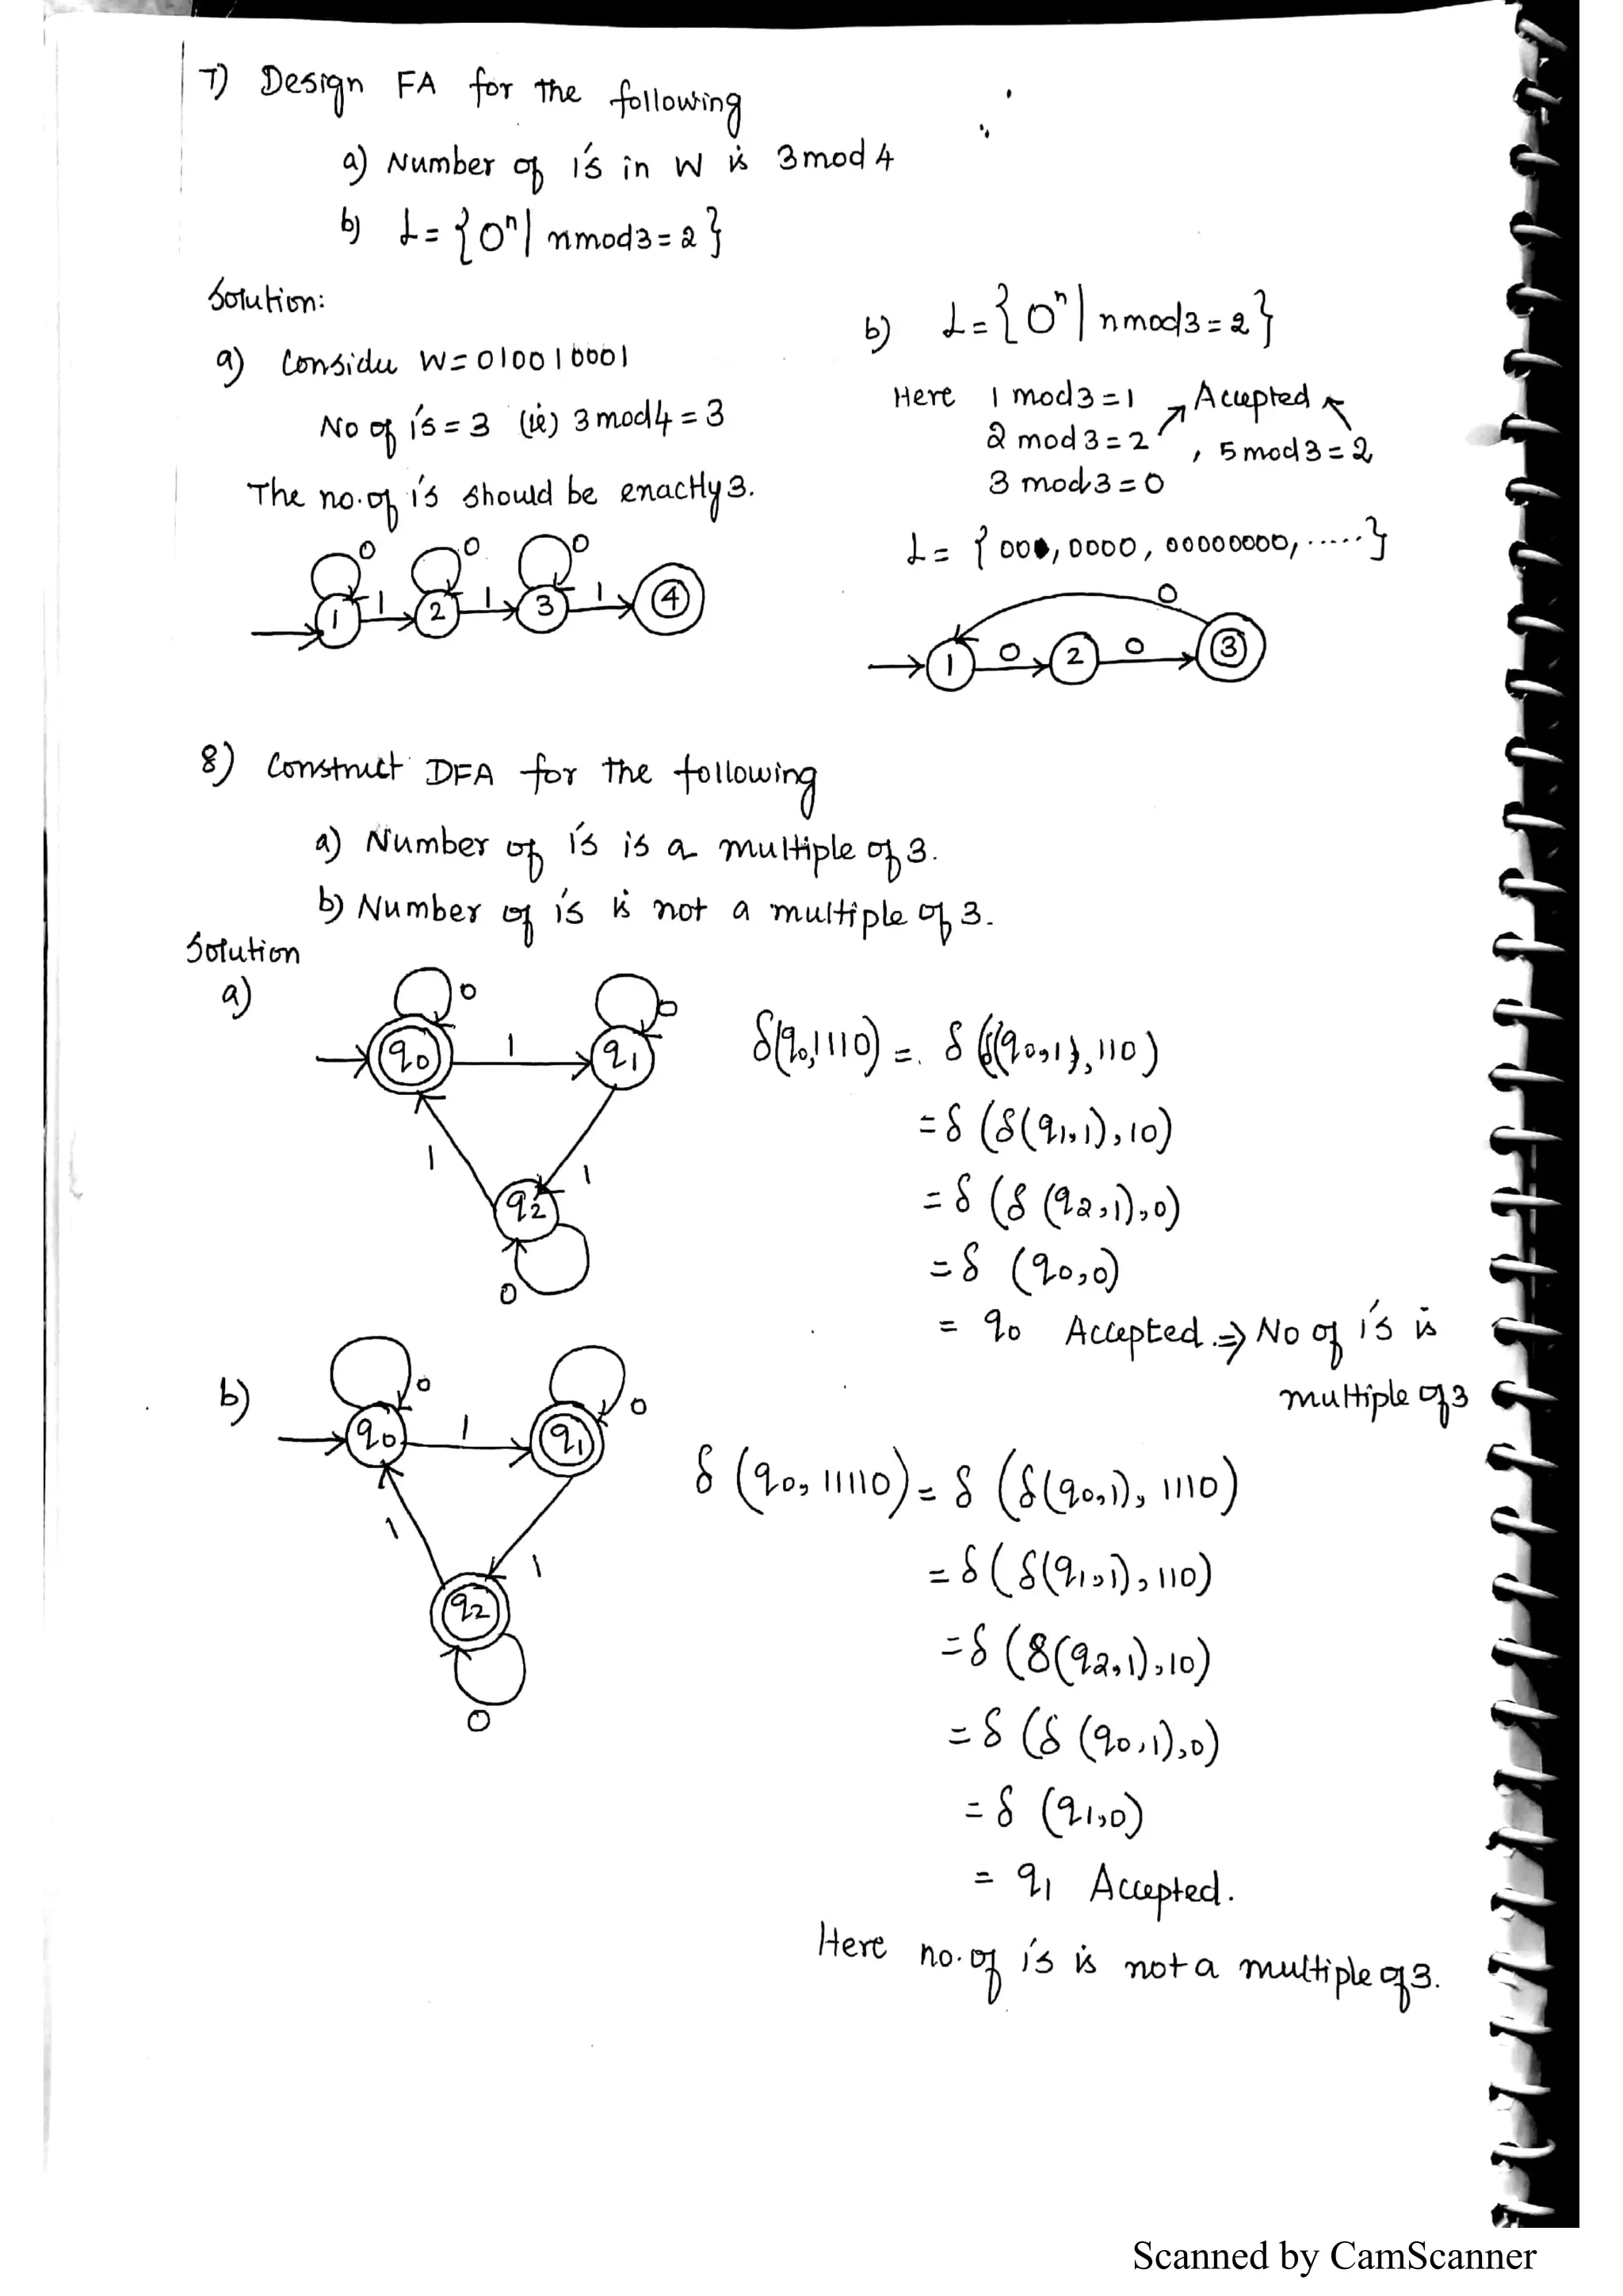 7) Design FA for the following
a) Number of 1's in W is 3mod4
b) L = {0ⁿ| nmod3=2}
Solution:
a) Consider W=010010001
No of 1's = 3 (ie) 3mod4 = 3
The no.of 1's should be enactly 3.
0 0 0
1 1 1
1 2 3 4
b) L={0ⁿ| nmod3=2}
Here 1 mod3=1 Accepted
2 mod3=2 , 5mod3=2
3 mod3=0
L= { 00, 0000, 00000000, .....}
0
1 0 2 0 3
8) Construct DFA for the following
a) Number of 1's is a multiple of 3.
b) Number of 1's is not a multiple of 3.
Solution
a)
0 0
q0 1 q1
1 1
q2
0
δ(q0,1110) = δ(δ(q0,1),110)
=δ(δ(q1,1),10)
=δ(δ(q2,1),0)
=δ(q0,0)
= q0 Accepted.⇒ No of 1's is
multiple of 3
b)
0 0
q0 1 q1
1 1
q2
0
δ(q0, 11110) = δ(δ(q0,1), 1110)
=δ(δ(q1,1),110)
=δ(δ(q2,1),10)
=δ(δ(q0,1),0)
=δ(q1,0)
= q1 Accepted.
Here no.of 1's is not a multiple of 3.
Scanned by CamScanner